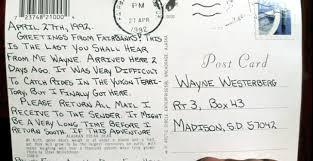 7 23748 21000 4
APRIL 27TH, 1992.
GREETINGS FROM FAIRBANKS! THIS
IS THE LAST YOU SHALL HEAR
FROM ME WAYNE. ARRIVED HERE 2
DAYS AGO. IT WAS VERY DIFFICULT
TO CATCH RIDES IN THE YUKON TERRI-
TORY. BUT I FINALLY GOT HERE.
PLEASE RETURN ALL MAIL I
RECEIVE TO THE SENDER. IT MIGHT
BE A VERY LONG TIME BEFORE I
RETURN SOUTH. IF THIS ADVENTURE
PM
27 APR
1992
USA
Post Card
WAYNE WESTERBERG
RT 3, BOX 43
MADISON, SD 57042